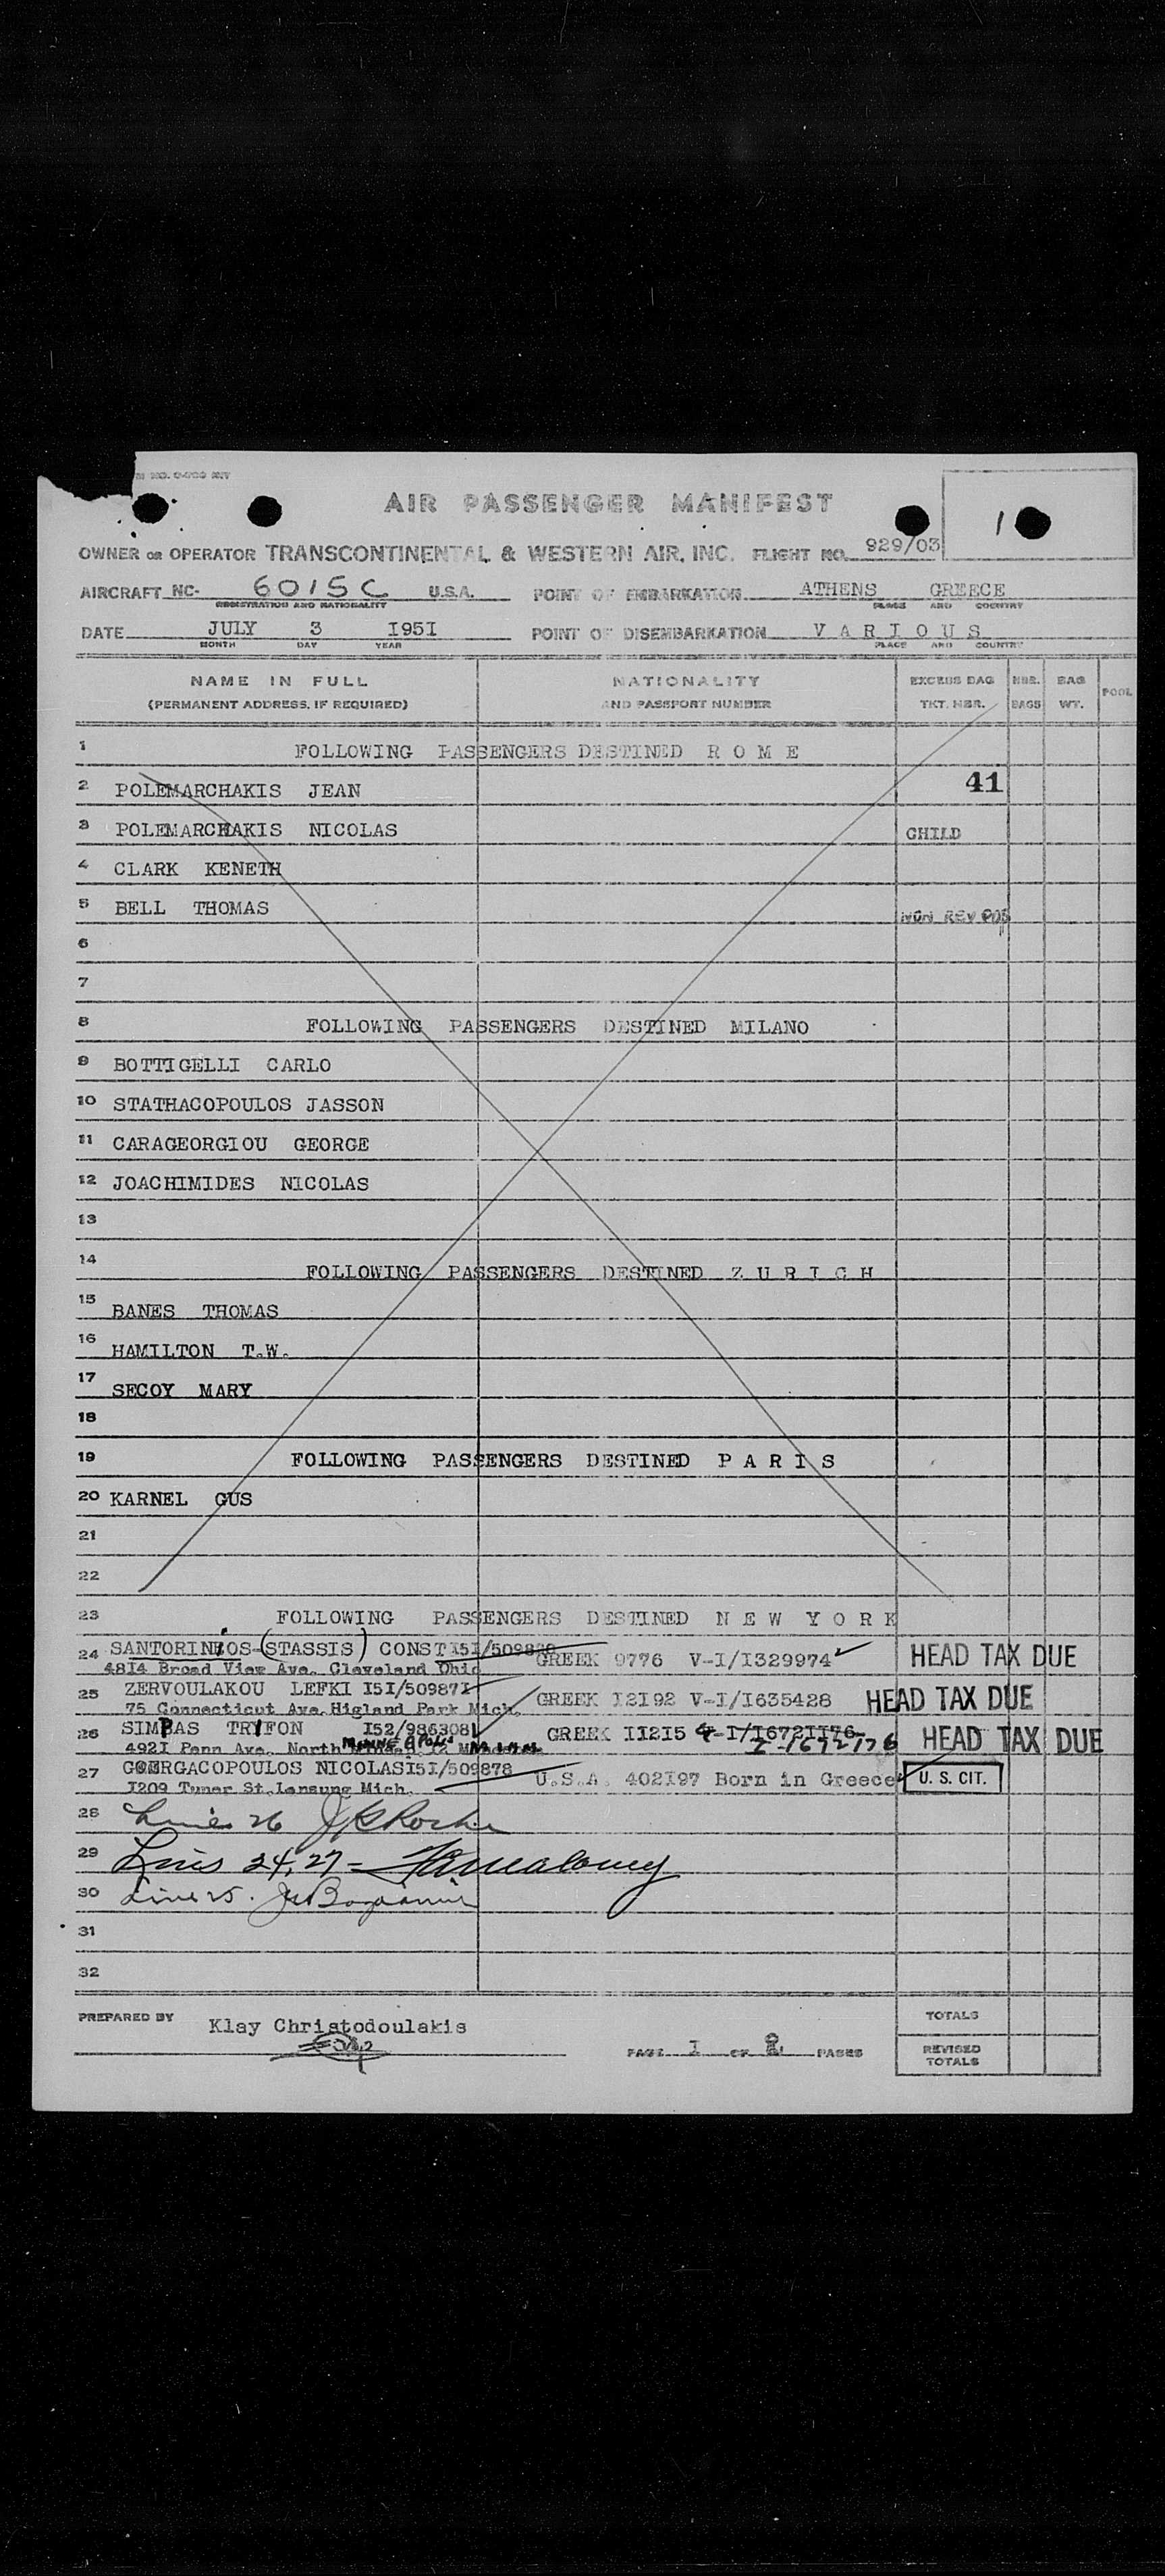 AIR PASSENGER MANIFEST
1
OWNER OR OPERATOR TRANSCONTINENTAL & WESTERN AIR, INC. FLIGHT NO. 929/03
AIRCRAFT NC- 6015C U.S.A. POINT OF EMBARKATION ATHENS GREECE
REGISTRATION AND NATIONALITY PLACE AND COUNTRY
DATE JULY 3 I95I POINT OF DISEMBARKATION V A R I O U S
MONTH DAY YEAR PLACE AND COUNTRY
NAME IN FULL NATIONALITY EXCESS BAG NBR. BAG POOL
(PERMANENT ADDRESS, IF REQUIRED) AND PASSPORT NUMBER TKT. NBR. BAGS WT.
1 FOLLOWING PASSENGERS DESTINED R O M E
2 POLEMARCHAKIS JEAN 41
3 POLEMARCHAKIS NICOLAS CHILD
4 CLARK KENETH
5 BELL THOMAS NON REV POS
6
7
8 FOLLOWING PASSENGERS DESTINED MILANO
9 BOTTIGELLI CARLO
10 STATHACOPOULOS JASSON
11 CARAGEORGIOU GEORGE
12 JOACHIMIDES NICOLAS
13
14 FOLLOWING PASSENGERS DESTINED Z U R I C H
15 BANES THOMAS
16 HAMILTON T.W.
17 SECOY MARY
18
19 FOLLOWING PASSENGERS DESTINED P A R I S
20 KARNEL GUS
21
22
23 FOLLOWING PASSENGERS DESTINED N E W Y O R K
24 SANTORINIOS-(STASSIS) CONST GREEK 9776 V-I/I329974 HEAD TAX DUE
48I4 Broad View Ave. Cleveland Ohio
25 ZERVOULAKOU LEFKI I5I/50987I GREEK I2I92 V-I/I635428 HEAD TAX DUE
75 Connecticut Ave. Higland Park Mich.
26 SIMPAS TRYFON I52/986308 GREEK II2I5 I-1672176 HEAD TAX DUE
492I Penn Ave. North MINNEAPOLIS
27 GEORGACOPOULOS NICOLAS I5I/509878 U.S.A. 402I97 Born in Greece U. S. CIT.
I209 Tuner St. Lansung Mich.
28 Line 26
29 Lines 24, 27 -
30 Line 25.
31
32
PREPARED BY Klay Christodoulakis TOTALS
PAGE I OF 2 PAGES REVISED TOTALS